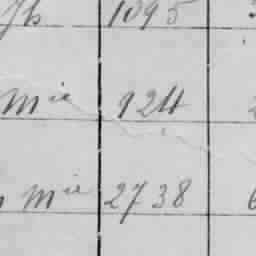 Jh 1095
Mie 124
Mie 2738